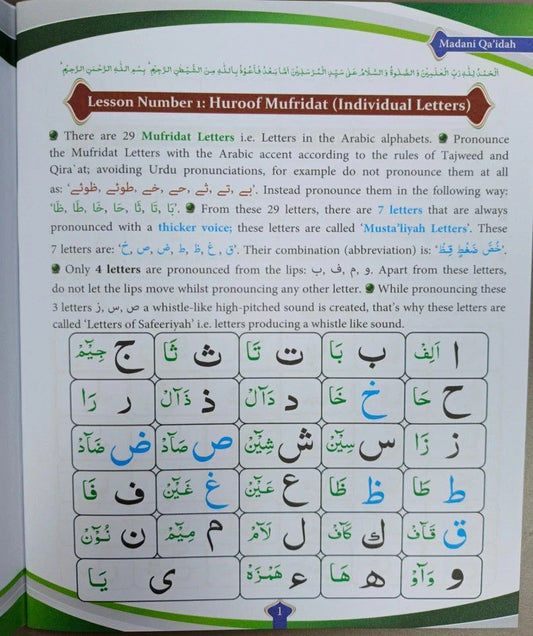 Madani Qa'idah
اَلْحَمْدُ لِلّٰهِ رَبِّ الْعٰلَمِيْنَ وَ الصَّلٰوةُ وَ السَّلَامُ عَلٰى سَيِّدِ الْمُرْسَلِيْنَ اَمَّا بَعْدُ فَاَعُوْذُ بِاللّٰهِ مِنَ الشَّيْطٰنِ الرَّجِيْمِ ؕ بِسْمِ اللّٰهِ الرَّحْمٰنِ الرَّحِيْمِ ؕ
Lesson Number 1: Huroof Mufridat (Individual Letters)
There are 29 Mufridat Letters i.e. Letters in the Arabic alphabets. Pronounce
the Mufridat Letters with the Arabic accent according to the rules of Tajweed and
Qira`at; avoiding Urdu pronunciations, for example do not pronounce them at all
as: ‘بے, تے, ثے, حے, خے, طوئے, ظوئے’. Instead pronounce them in the following way:
‘بَا, تَا, ثَا, حَا, خَا, طَا, ظَا’. From these 29 letters, there are 7 letters that are always
pronounced with a thicker voice; these letters are called ‘Musta'liyah Letters’. These
7 letters are: ‘خ, ص, ض, ط, ظ, غ, ق’. Their combination (abbreviation) is: ‘خُصَّ ضَغْطٍ قِظْ’.
Only 4 letters are pronounced from the lips: ب, ف, م, و. Apart from these letters,
do not let the lips move whilst pronouncing any other letter. While pronouncing these
3 letters ز, س, ص a whistle-like high-pitched sound is created, that's why these letters are
called ‘Letters of Safeeriyah’ i.e. letters producing a whistle like sound.
ا اَلِفْ ب بَا ت تَا ث ثَا ج جِيْٓمْ
ح حَا خ خَا د دَآلْ ذ ذَآلْ ر رَا
ز زَا س سِيْٓنْ ش شِيْٓنْ ص صَآدْ ض ضَآدْ
ط طَا ظ ظَا ع عَيْٓنْ غ غَيْٓنْ ف فَا
ق قَآفْ ك كَآفْ ل لَآمْ م مِيْٓمْ ن نُوْٓنْ
و وَآوْ ه هَا ء هَمْزَهْ ى يَا
1